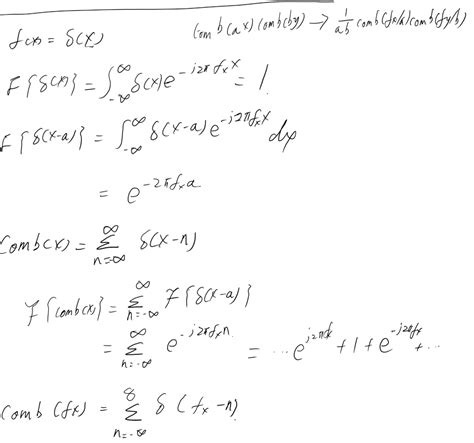 comb(ax)comb(by) → 1/ab comb(fx/a)comb(fy/b)
f(x) = δ(x)
F{δ(x)} = ∫_{-∞}^{∞} δ(x)e^{-j2π fx x} = 1.
F{δ(x-a)} = ∫_{-∞}^{∞} δ(x-a)e^{-j2πfx x} dx
= e^{-2πfx a}
Comb(x) = Σ_{n=-∞}^{∞} δ(x-n)
F{comb(x)} = Σ_{n=-∞}^{∞} F{δ(x-a)}
= Σ_{n=-∞}^{∞} e^{-j2πfx n} = ... e^{j2πfx} + 1 + e^{-j2πfx} + ...
Comb (fx) = Σ_{n=-∞}^{8} δ (fx-n)